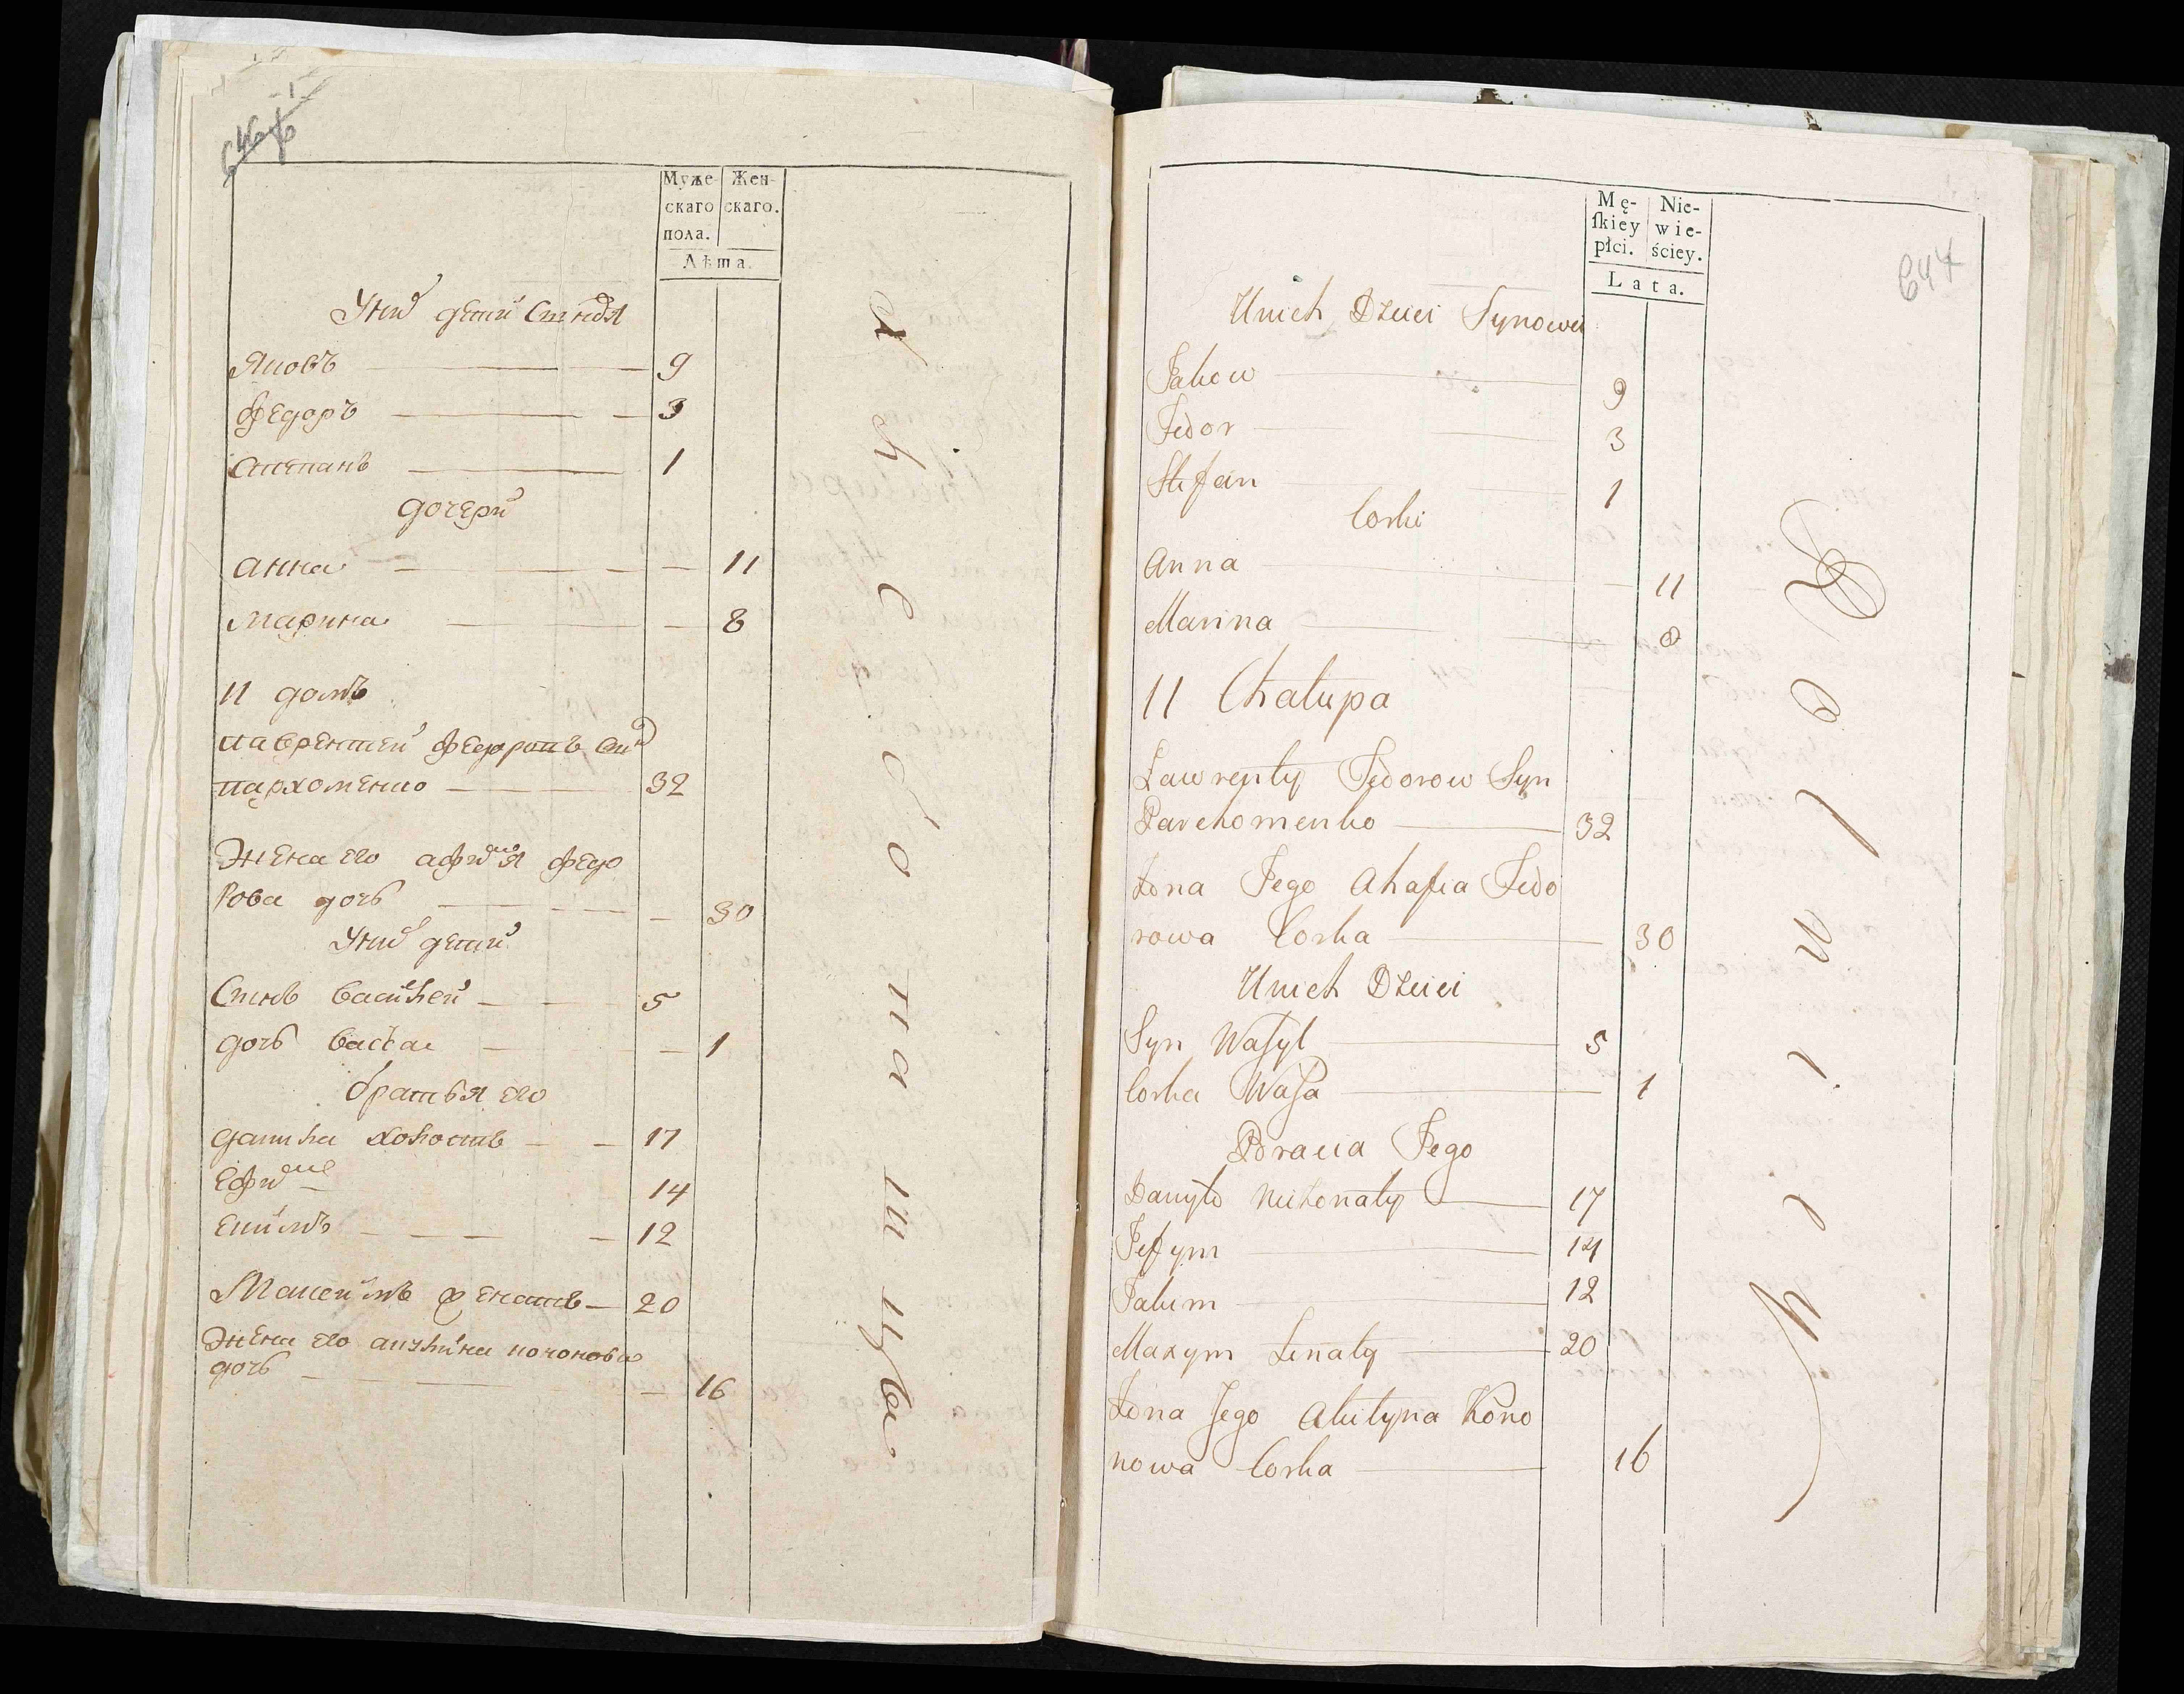 Муже-
скаго
пола.
Жен-
скаго.
Лѣта.
Яковъ 9
Федоръ 3
Степанъ 1
дочери
анна 11
марина 8
11 домъ
лаврентей федоровъ сынъ
пархоменко 32
жена его афимия федо
рова дочь 30
У них дети
Сынъ василей 5
дочь васса 1
братья его
данила холостъ 17
ефим 14
екимъ 12
Максимъ женатъ 20
жена его акулина кононова
дочь 16
647
Mę-
ſkiey
płci.
Nie-
wie-
ściey.
Lata.
Unich Dzieci Synowie
Jakow 9
Fedor 3
Stefan 1
Corki
Anna 11
Marina 8
11 Chałupa
Lawrenty Fedorow Syn
Parchomenko 32
Żona Jego Ahafia Fedo
rowa Corka 30
Unich Dzieci
Syn Wasyl 5
Corka Wasa 1
Bracia Jego
Danyło Nieżonaty 17
Jefym 14
Jakim 12
Maxym Żenaty 20
Żona Jego Akulyna Kono
nowa Corka 16